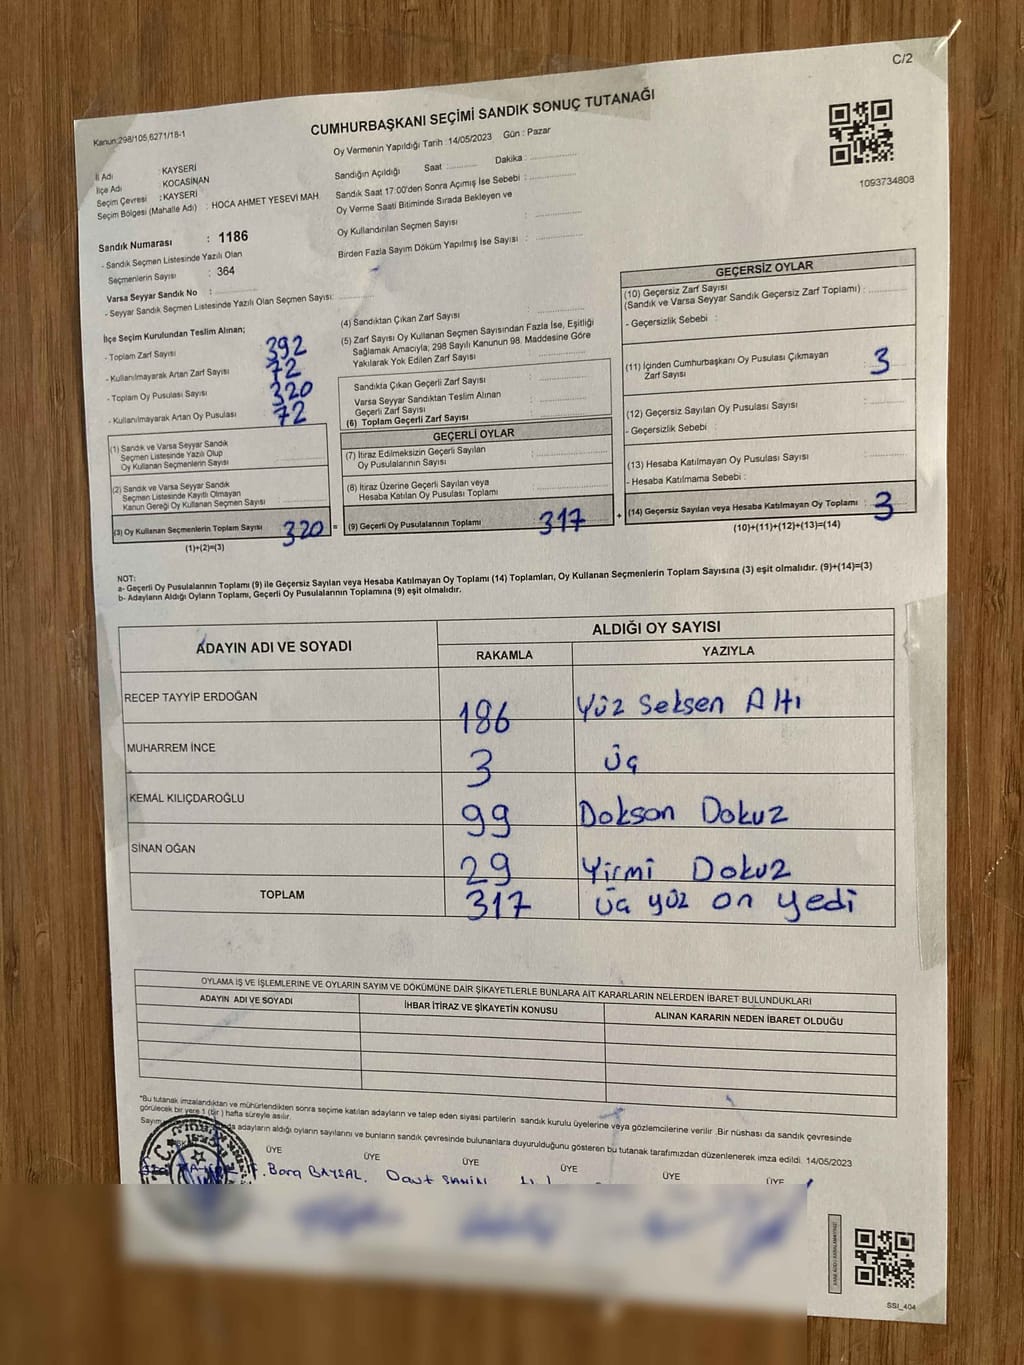 C/2
Kanun:298/105,6271/18-1
CUMHURBAŞKANI SEÇİMİ SANDIK SONUÇ TUTANAĞI
Oy Vermenin Yapıldığı Tarih : 14/05/2023 Gün : Pazar
1093734808
İl Adı : KAYSERİ
İlçe Adı : KOCASİNAN
Seçim Çevresi : KAYSERİ
Seçim Bölgesi (Mahalle Adı) : HOCA AHMET YESEVİ MAH
Sandık Numarası : 1186
- Sandık Seçmen Listesinde Yazılı Olan
Seçmenlerin Sayısı : 364
Varsa Seyyar Sandık No :
- Seyyar Sandık Seçmen Listesinde Yazılı Olan Seçmen Sayısı:
Sandığın Açıldığı Saat Dakika :
Sandık Saat 17:00'den Sonra Açılmış İse Sebebi :
Oy Verme Saati Bitiminde Sırada Bekleyen ve
Oy Kullandırılan Seçmen Sayısı :
Birden Fazla Sayım Döküm Yapılmış İse Sayısı :
İlçe Seçim Kurulundan Teslim Alınan;
- Toplam Zarf Sayısı 392
- Kullanılmayarak Artan Zarf Sayısı 72
- Toplam Oy Pusulası Sayısı 320
- Kullanılmayarak Artan Oy Pusulası 72
(1) Sandık ve Varsa Seyyar Sandık
Seçmen Listesinde Yazılı Olup
Oy Kullanan Seçmenlerin Sayısı
(2) Sandık ve Varsa Seyyar Sandık
Seçmen Listesinde Kayıtlı Olmayan
Kanun Gereği Oy Kullanan Seçmen Sayısı
(3) Oy Kullanan Seçmenlerin Toplam Sayısı 320 =
(1)+(2)=(3)
(4) Sandıktan Çıkan Zarf Sayısı :
(5) Zarf Sayısı Oy Kullanan Seçmen Sayısından Fazla İse, Eşitliği
Sağlamak Amacıyla, 298 Sayılı Kanunun 98. Maddesine Göre
Yakılarak Yok Edilen Zarf Sayısı :
Sandıkta Çıkan Geçerli Zarf Sayısı :
Varsa Seyyar Sandıktan Teslim Alınan
Geçerli Zarf Sayısı :
(6) Toplam Geçerli Zarf Sayısı
GEÇERLİ OYLAR
(7) İtiraz Edilmeksizin Geçerli Sayılan
Oy Pusulalarının Sayısı :
(8) İtiraz Üzerine Geçerli Sayılan veya
Hesaba Katılan Oy Pusulası Toplamı :
(9) Geçerli Oy Pusulalarının Toplamı : 317 +
GEÇERSİZ OYLAR
(10) Geçersiz Zarf Sayısı
(Sandık ve Varsa Seyyar Sandık Geçersiz Zarf Toplamı) :
- Geçersizlik Sebebi :
(11) İçinden Cumhurbaşkanı Oy Pusulası Çıkmayan
Zarf Sayısı : 3
(12) Geçersiz Sayılan Oy Pusulası Sayısı :
- Geçersizlik Sebebi :
(13) Hesaba Katılmayan Oy Pusulası Sayısı :
- Hesaba Katılmama Sebebi :
(14) Geçersiz Sayılan veya Hesaba Katılmayan Oy Toplamı : 3
(10)+(11)+(12)+(13)=(14)
NOT:
a- Geçerli Oy Pusulalarının Toplamı (9) ile Geçersiz Sayılan veya Hesaba Katılmayan Oy Toplamı (14) Toplamları, Oy Kullanan Seçmenlerin Toplam Sayısına (3) eşit olmalıdır. (9)+(14)=(3)
b- Adayların Aldığı Oyların Toplamı, Geçerli Oy Pusulalarının Toplamına (9) eşit olmalıdır.
ADAYIN ADI VE SOYADI ALDIĞI OY SAYISI
RAKAMLA YAZIYLA
RECEP TAYYİP ERDOĞAN 186 Yüz Seksen Altı
MUHARREM İNCE 3 üç
KEMAL KILIÇDAROĞLU 99 Doksan Dokuz
SİNAN OĞAN 29 Yirmi Dokuz
TOPLAM 317 üç yüz on yedi
OYLAMA İŞ VE İŞLEMLERİNE VE OYLARIN SAYIM VE DÖKÜMÜNE DAİR ŞİKAYETLERLE BUNLARA AİT KARARLARIN NELERDEN İBARET BULUNDUKLARI
ADAYIN ADI VE SOYADI İHBAR İTİRAZ VE ŞİKAYETİN KONUSU ALINAN KARARIN NEDEN İBARET OLDUĞU
*Bu tutanak imzalandıktan ve mühürlendikten sonra seçime katılan adayların ve talep eden siyasi partilerin sandık kurulu üyelerine veya gözlemcilerine verilir .Bir nüshası da sandık çevresinde
görülecek bir yere 1 (bir ) hafta süreyle asılır.
adayların aldığı oyların sayılarını ve bunların sandık çevresinde bulunanlara duyurulduğunu gösteren bu tutanak tarafımızdan düzenlenerek imza edildi. 14/05/2023
ÜYE ÜYE ÜYE ÜYE ÜYE ÜYE
F. Bora BAYSAL. Davut ŞAHİN
SSI_404